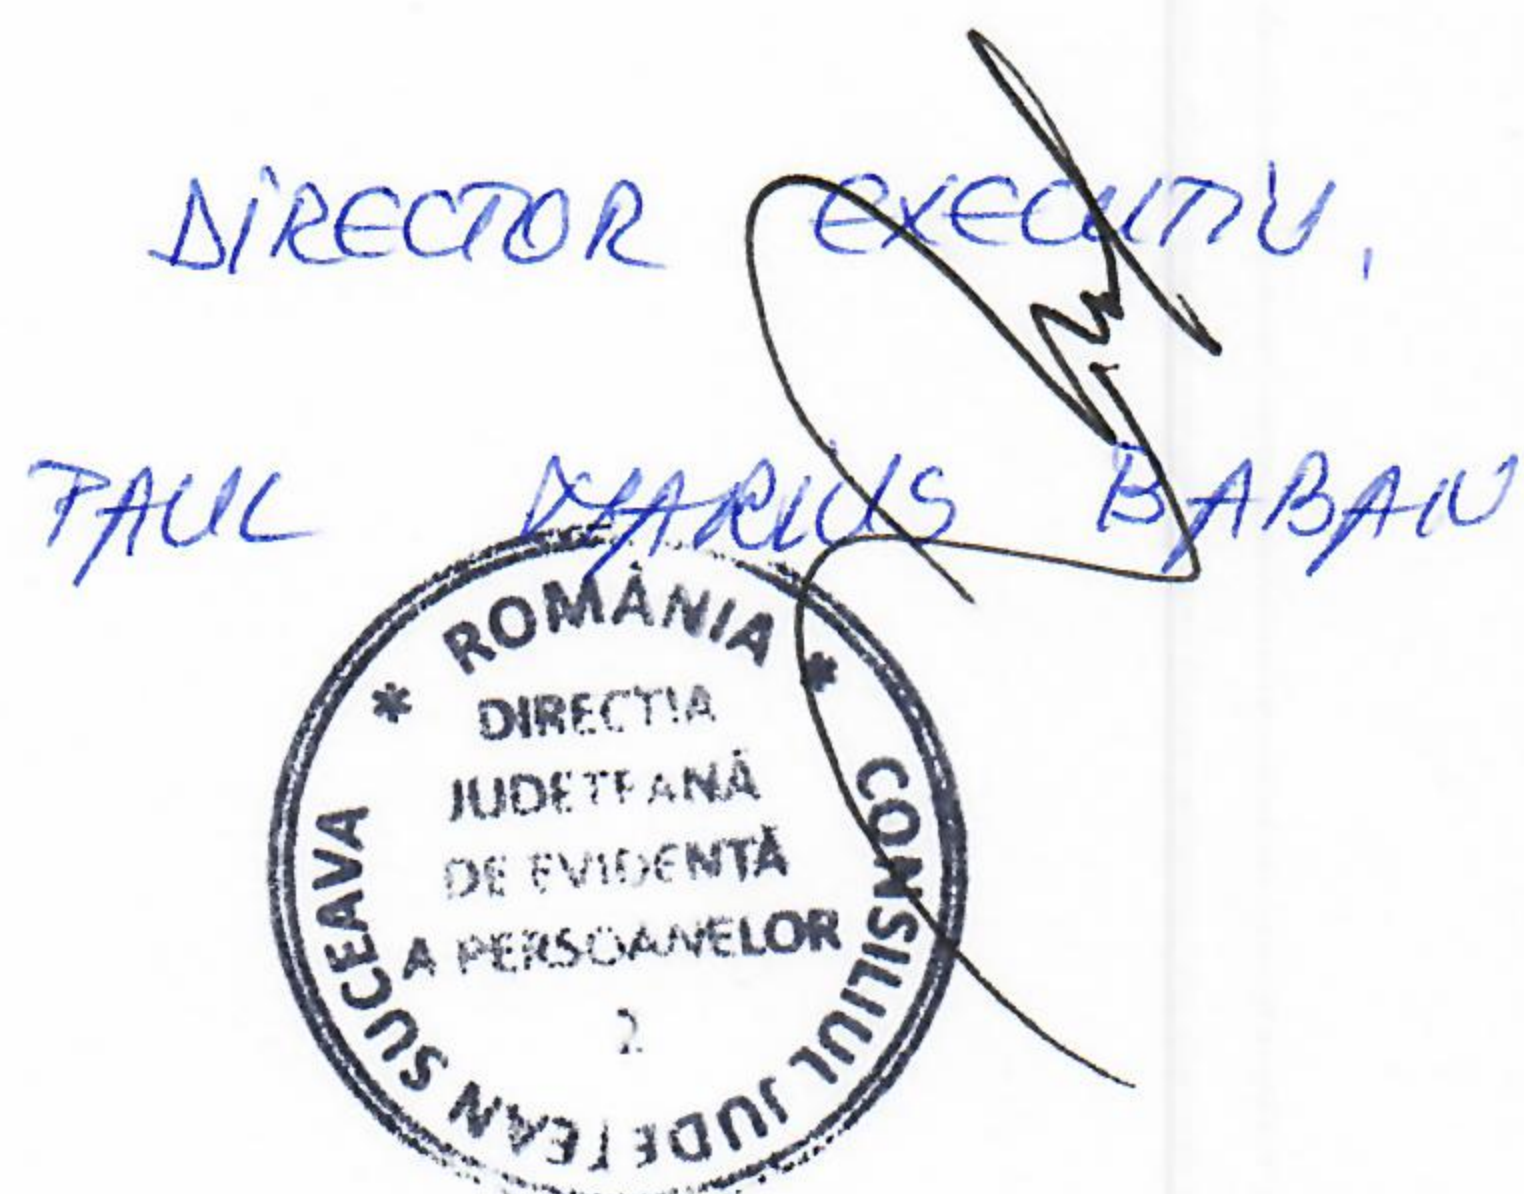 DIRECTOR EXECUTIV,
PAUL MARIUS BABAN
* ROMÂNIA *
CONSILIUL JUDETEAN SUCEAVA
DIRECTIA
JUDETEANĂ
DE EVIDENTĂ
A PERSOANELOR
2